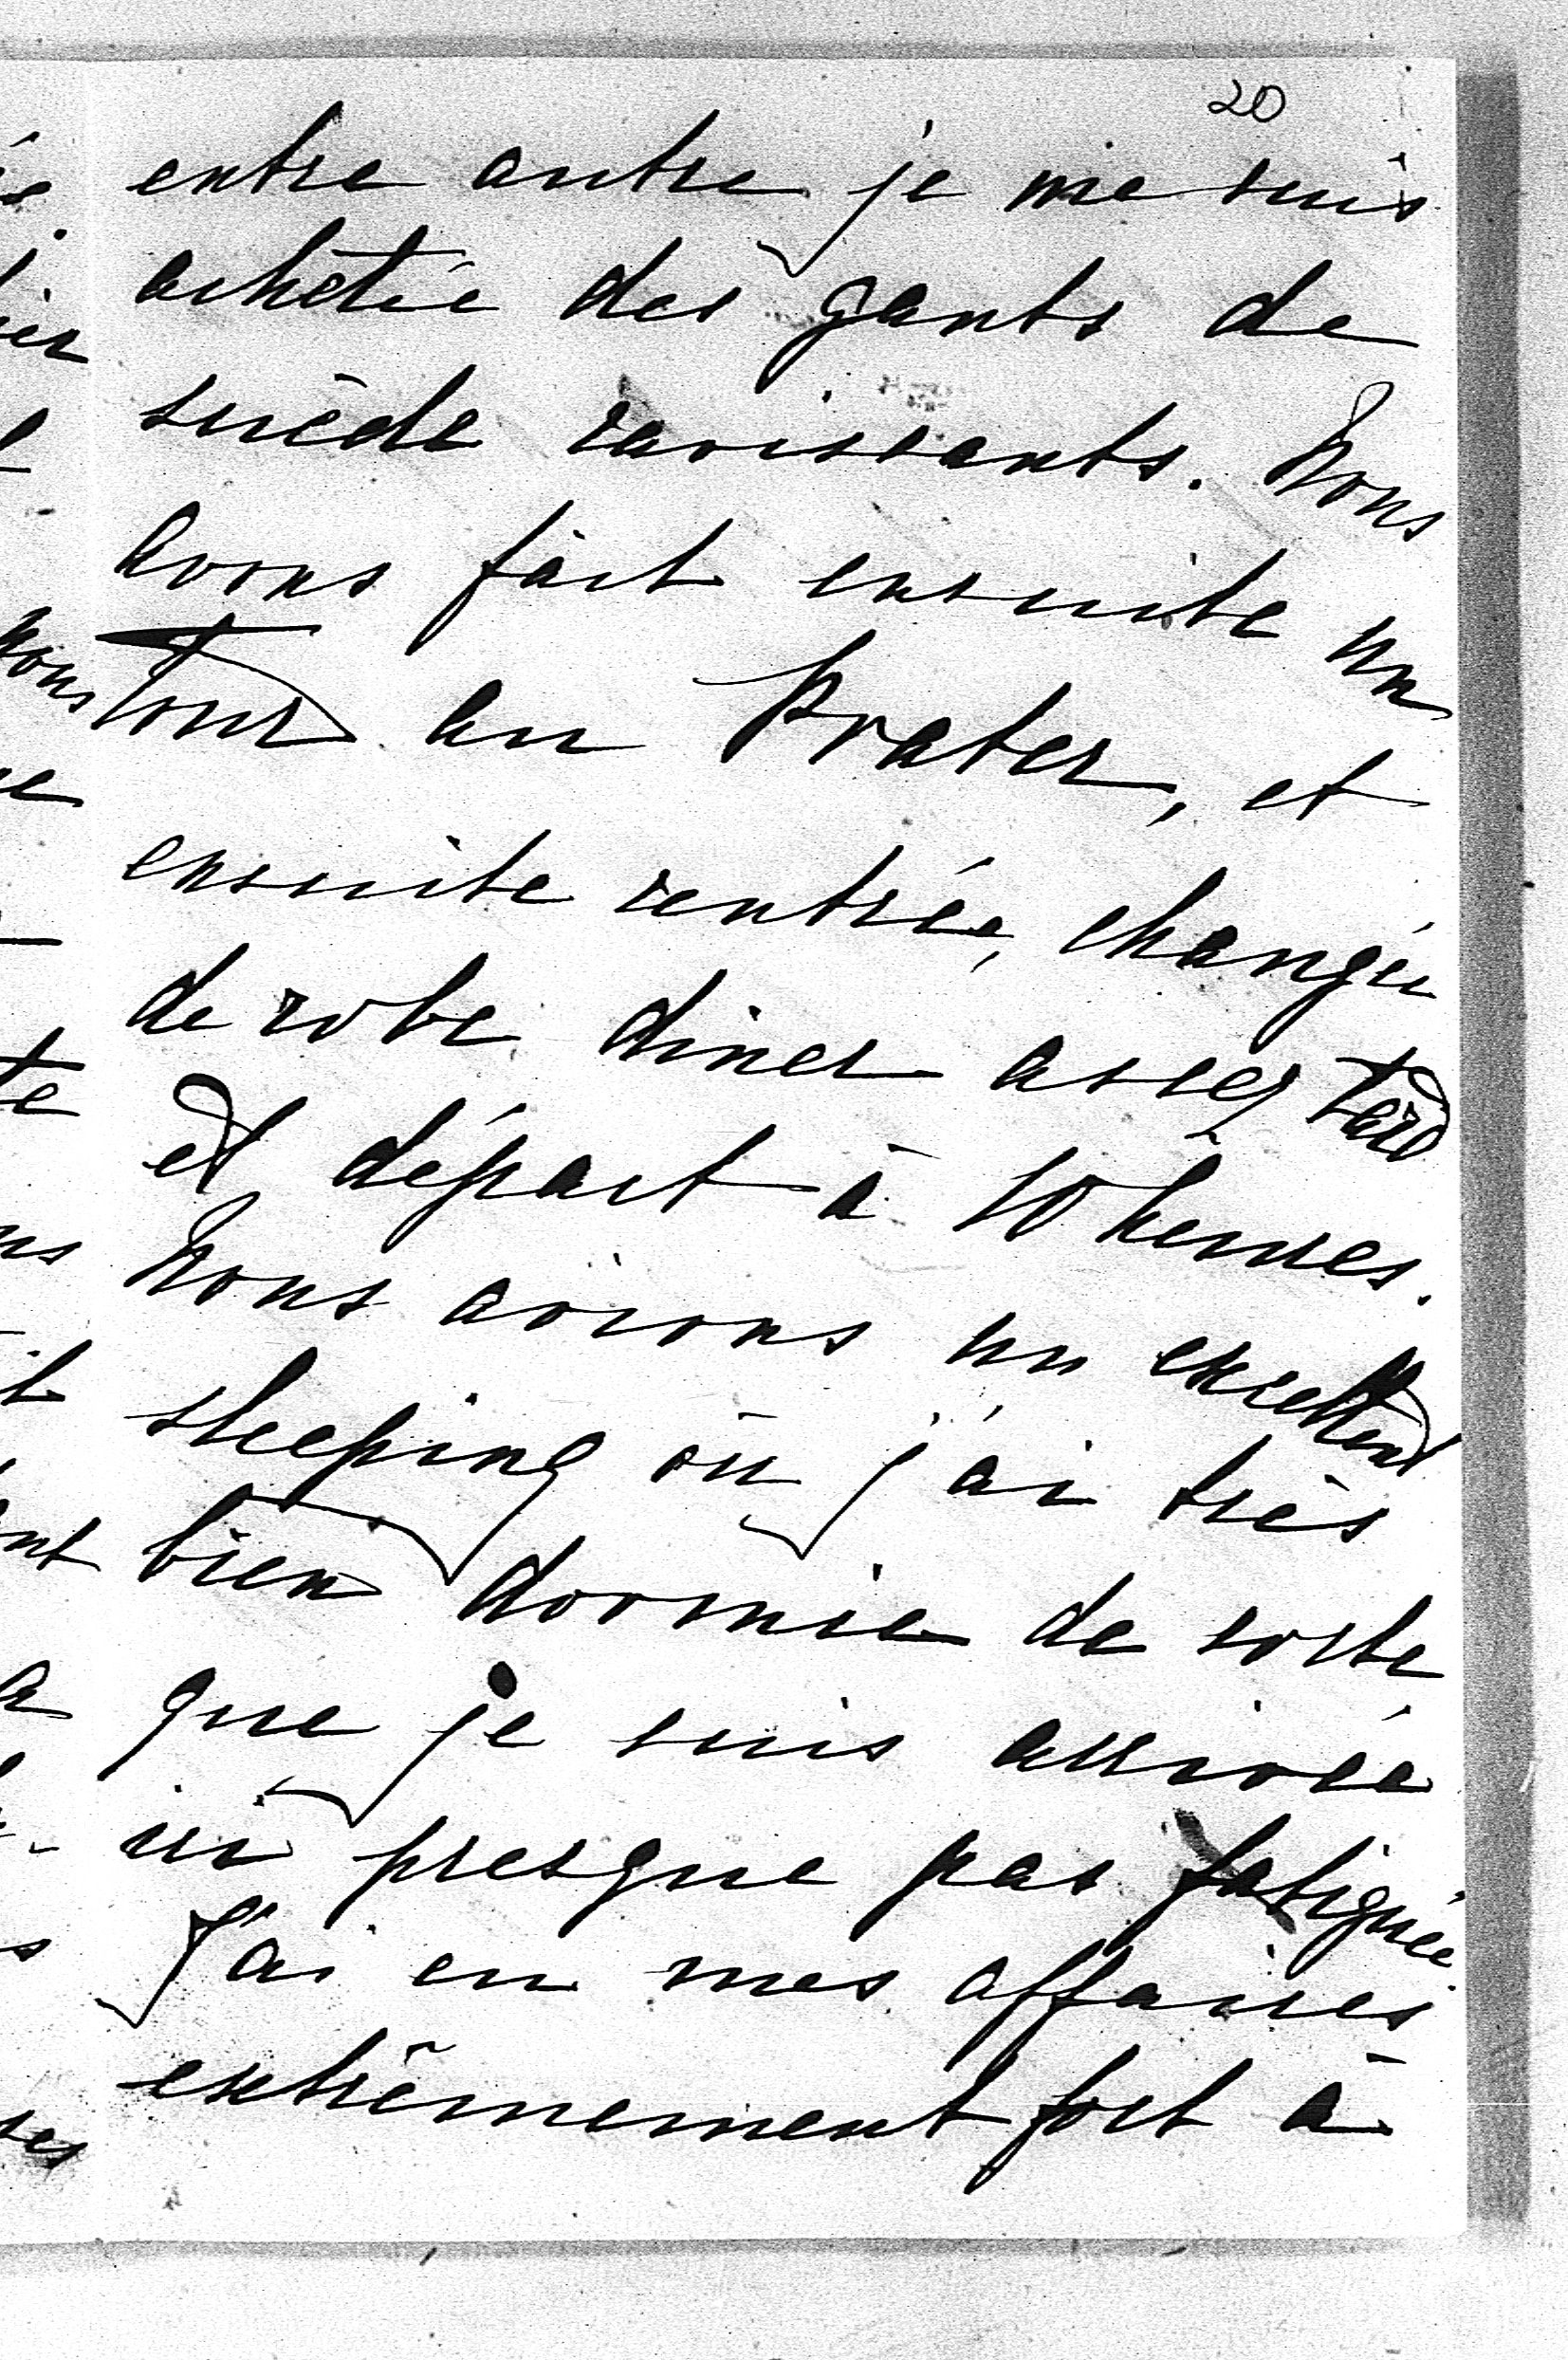 20
entre autre je me suis
achetée des gants de
suède ravissants. Nous
avons fait ensuite un
tour au Prater, et
ensuite rentrée, changée
de robe diner assez tard
et départ à 10 heures.
Nous avions un excellent
sleeping où j'ai très
bien dormie de sorte
que je suis arrivée
ici presque pas fatiguée.
J'ai eu mes affaires
extrêmement fort à